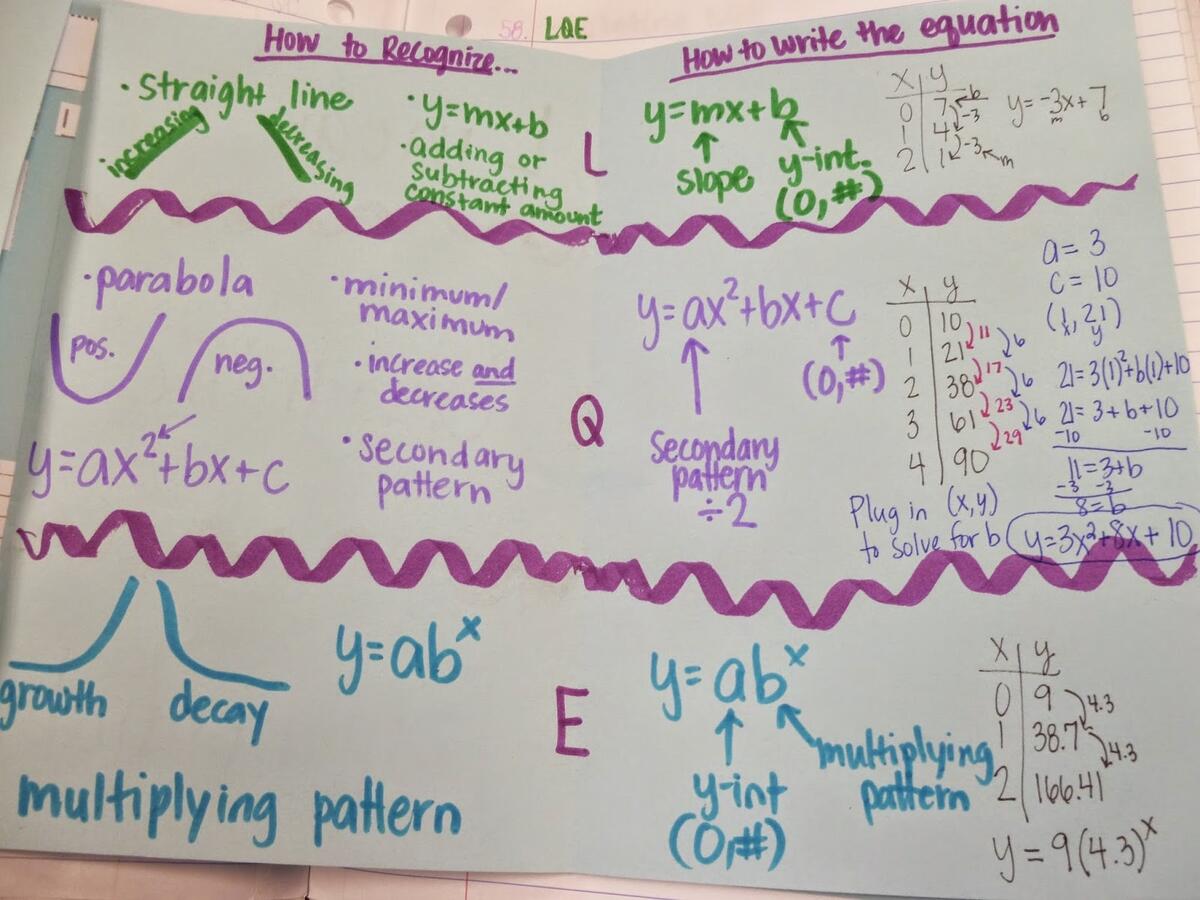 58. LQE
How to Recognize...
• straight line
increasing
decreasing
• y=mx+b
• adding or
subtracting
constant amount
L
How to write the equation
y=mx+b
slope
y-int.
(0,#)
x y
0 7 b
1 4 -3
2 1 -3 m
y=-3x+7
m b
• parabola
pos.
neg.
y=ax²+bx+c
• minimum/
maximum
• increase and
decreases
• secondary
pattern
Q
y=ax²+bx+c
(0,#)
Secondary
pattern
÷2
x y
0 10
1 21
2 38
3 61
4 90
11
17
23
29
6
6
6
a=3
c=10
(1,21)
x y
21=3(1)²+b(1)+10
21=3+b+10
-10 -10
11=3+b
-3 -3
8=b
Plug in (x,y)
to solve for b
y=3x²+8x+10
growth
decay
y=abˣ
multiplying pattern
E
y=abˣ
y-int
(0,#)
multiplying
pattern
x y
0 9
1 38.7
2 166.41
4.3
4.3
y=9(4.3)ˣ